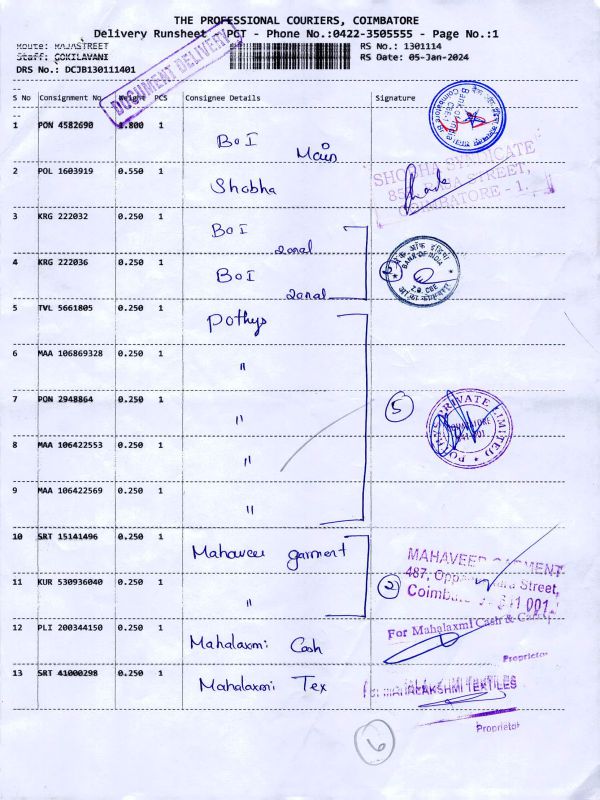 THE PROFESSIONAL COURIERS, COIMBATORE
Delivery Runsheet - PCT - Phone No.:0422-3505555 - Page No.:1
Route: RAJASTREET RS No.: 1301114
Staff: GOKILAVANI RS Date: 05-Jan-2024
DRS No.: DCJB130111401
DOCUMENT DELIVERY
S No Consignment No Weight PCS Consignee Details Signature
1 PON 4582690 1.800 1 BoI Main
2 POL 1603919 0.550 1 Shobha
SHOBHA SYNDICATE
STREET,
COIMBATORE - 1.
3 KRG 222032 0.250 1 BoI zonal
4 KRG 222036 0.250 1 BoI zonal
BANK OF INDIA
Z.O. CBE
5 TVL 5661805 0.250 1 Pothys
6 MAA 106869328 0.250 1 "
7 PON 2948864 0.250 1 "
5
PRIVATE LIMITED
8 MAA 106422553 0.250 1 "
9 MAA 106422569 0.250 1 "
10 SRT 15141496 0.250 1 Mahaveer garment
MAHAVEER GARMENT
487, Street,
11 KUR 530936040 0.250 1 "
2
12 PLI 200344150 0.250 1 Mahalaxmi Cash
For Mahalaxmi Cash & Carry
Proprietor
13 SRT 41000298 0.250 1 Mahalaxmi Tex
For MAHALAKSHMI TEXTILES
Proprietor
6